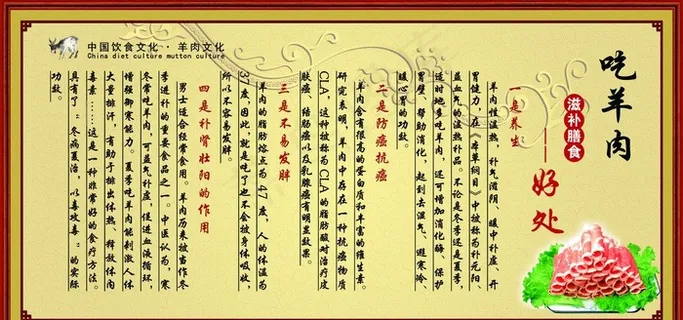 中国饮食文化·羊肉文化
China diet culture mutton culture
吃羊肉
滋补膳食
——好处
一是养生
羊肉性温热、补气滋阴、暖中补虚、开
胃健力，在《本草纲目》中被称为补元阳、
益血气的温热补品。不论是冬季还是夏季，
适时地多吃羊肉，还可增加消化酶、保护
胃壁、帮助消化，起到去湿气、避寒冷、
暖心胃的功效。
二是防癌抗癌
羊肉含有很高的蛋白质和丰富的维生素。
研究表明，羊肉中存在一种抗癌物质
CLA，这种被称为CLA的脂肪酸对治疗皮
肤癌、结肠癌以及乳腺癌有明显效果。
三是不易发胖
羊肉的脂肪熔点为47度，人的体温为
37度，因此，就是吃了也不会被身体吸收，
所以不容易发胖。
四是补肾壮阳的作用
男士适合经常食用。羊肉历来被当作冬
季进补的重要食品之一。中医认为，寒
冬常吃羊肉，可益气补虚，促进血液循环，
增强御寒能力。夏季吃羊肉能刺激人体
大量排汗，有助于排出体热、释放体内
毒素……这是一种非常好的食疗方法。
具有了“冬病夏治，以毒攻毒”的实际
功效。